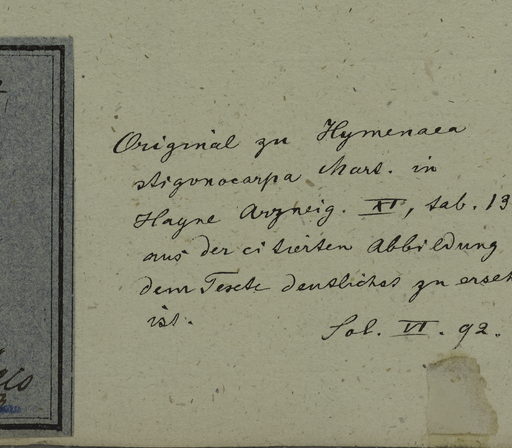 Original zu Hymenaea
stigonocarpa Mart. in
Hayne Arzneig. XI, tab. 13
aus der citierten Abbildung
dem Texte deutlichst zu erseh
ist.
Fol. VI. 92.